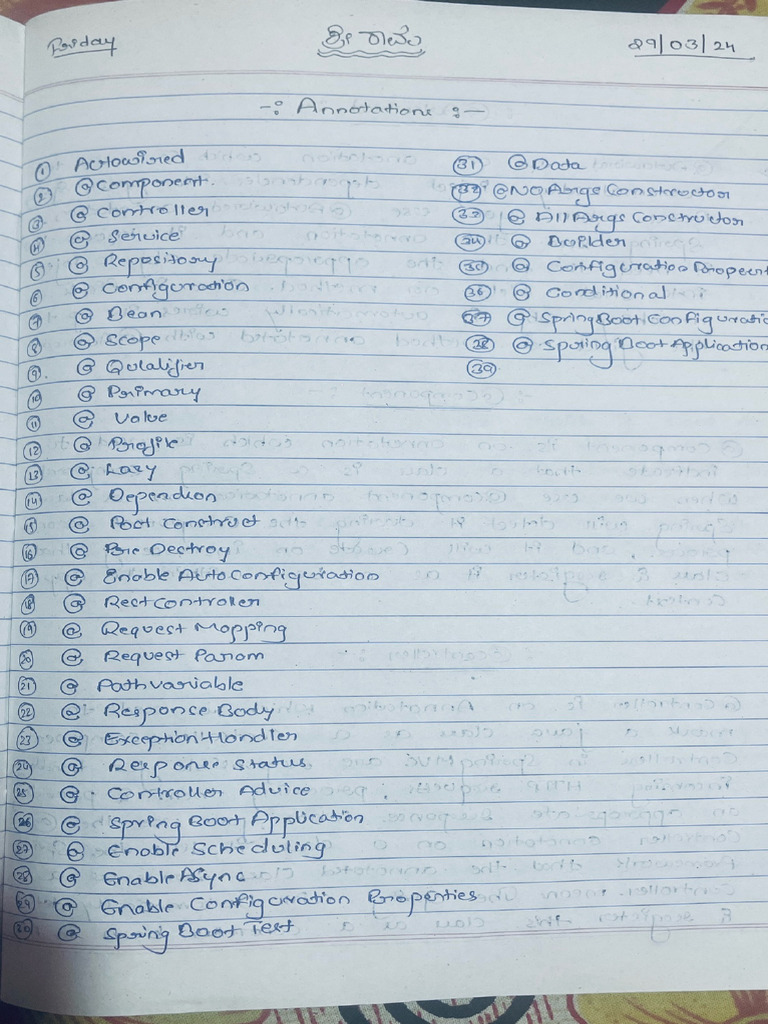 Friday
శ్రీ రామ
29/03/24
-: Annotations :-
1 Autowired
2 @ Component.
3 @ Controller
4 @ Service
5 @ Repository
6 @ Configuration
7 @ Bean
8 @ Scope
9. @ Qulalifier
10 @ Primary
11 @ Value
12 @ Profile
13 @ Lazy
14 @ Dependson
15 @ Post Construct
16 @ Pre Destroy
17 @ Enable AutoConfiguration
18 @ Rest Controler
19 @ Request Mapping
20 @ Request Param
21 @ Pathvariable
22 @ Response Body
23 @ Exception Handler
24 @ Response Status
25 @ Controller Advice
26 @ Spring Boot Application
27 @ Enable Scheduling
28 @ Enable Async
29 @ Enable Configuration Properties
30 @ Spring Boot Test
31 @ Data
32 @ No Args Constructor
33 @ All Args Constructor
34 @ Builder
35 @ Configuration Propert
36 @ Conditional
37 @ Spring Boot Configuratio
38 @ Spring Boot Application
39